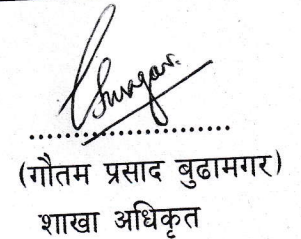 ................................
(गौतम प्रसाद बुढामगर)
शाखा अधिकृत